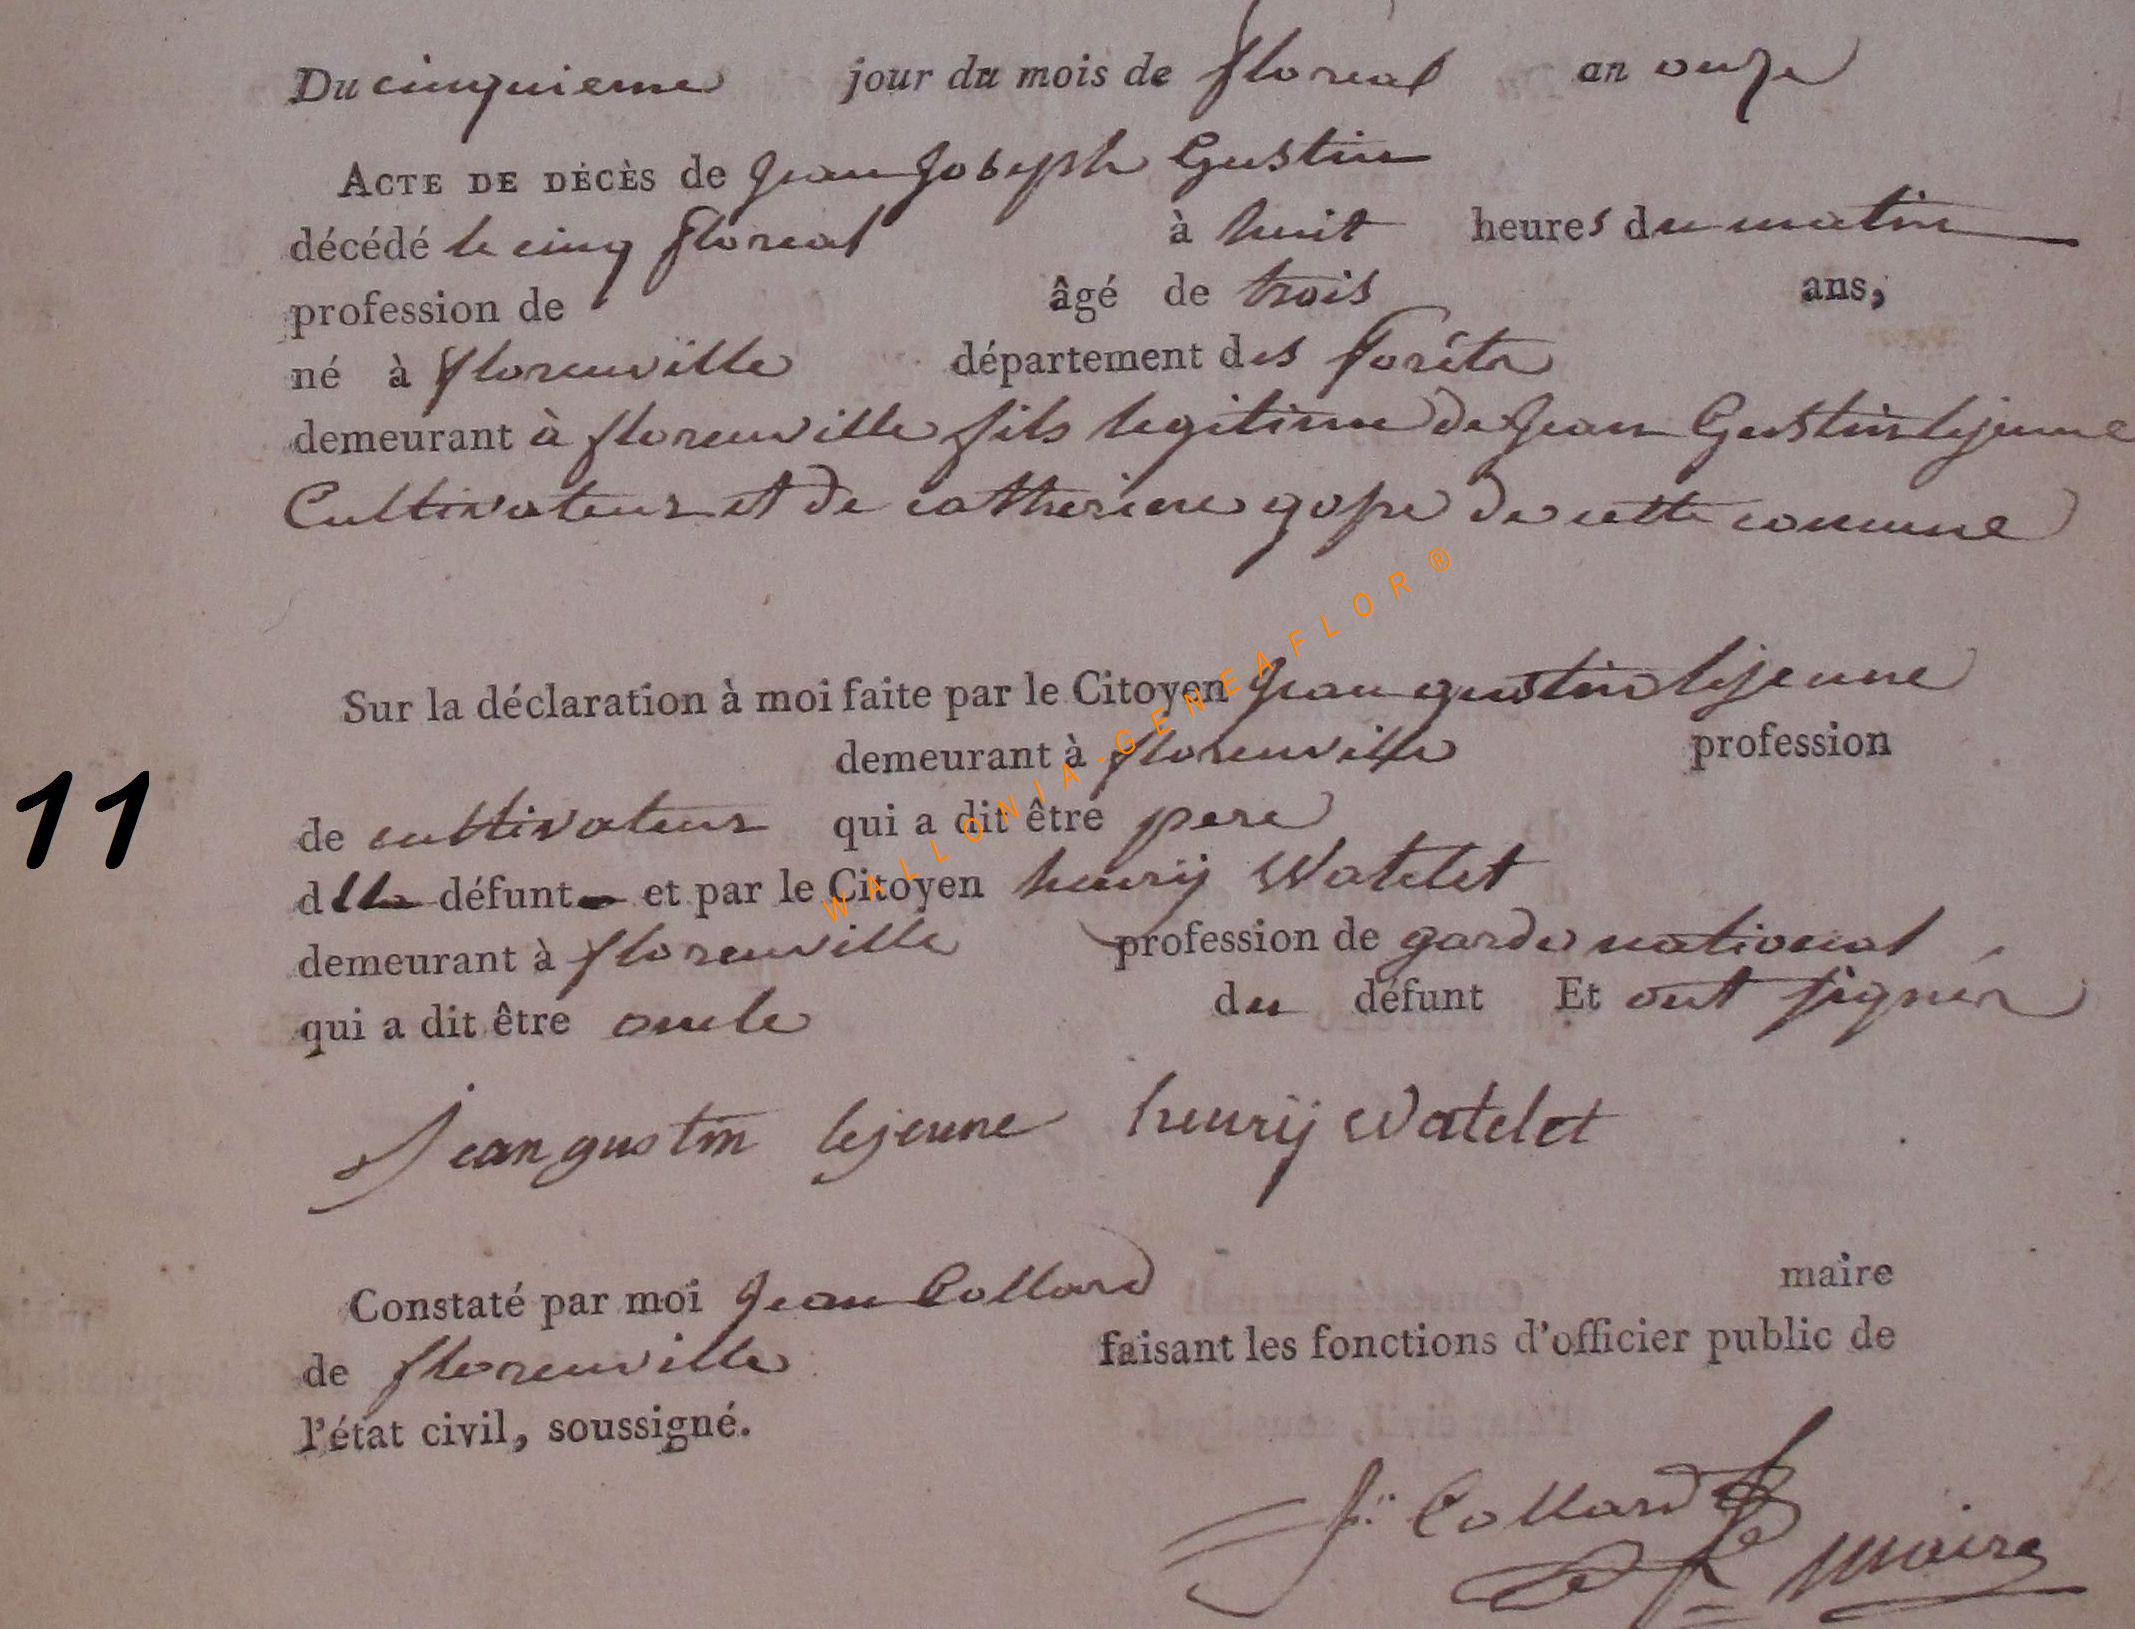 Du cinquieme jour du mois de floreal an onze
ACTE DE DÉCÈS de Jean Joseph Gustin
décédé le cinq floreal à huit heures du matin
profession de âgé de trois ans,
né à florenville département des Forêts
demeurant à florenville fils legitime de Jean Gustin lejeune
Cultivateur et de catherine de cette comune
Sur la déclaration à moi faite par le Citoyen Jean gustin lejeune
demeurant à florenville profession
11
de cultivateur qui a dit être pere
défunt et par le Citoyen henrij Watelet
demeurant à florenville profession de garde national
qui a dit être oncle du défunt Et ont signés
Jean gustin lejeune henrij Watelet
Constaté par moi Jean Collard maire
de florenville faisant les fonctions d'officier public de
l'état civil, soussigné.
Jn Collard
maire
WALLONIA-GENEAFLOR®